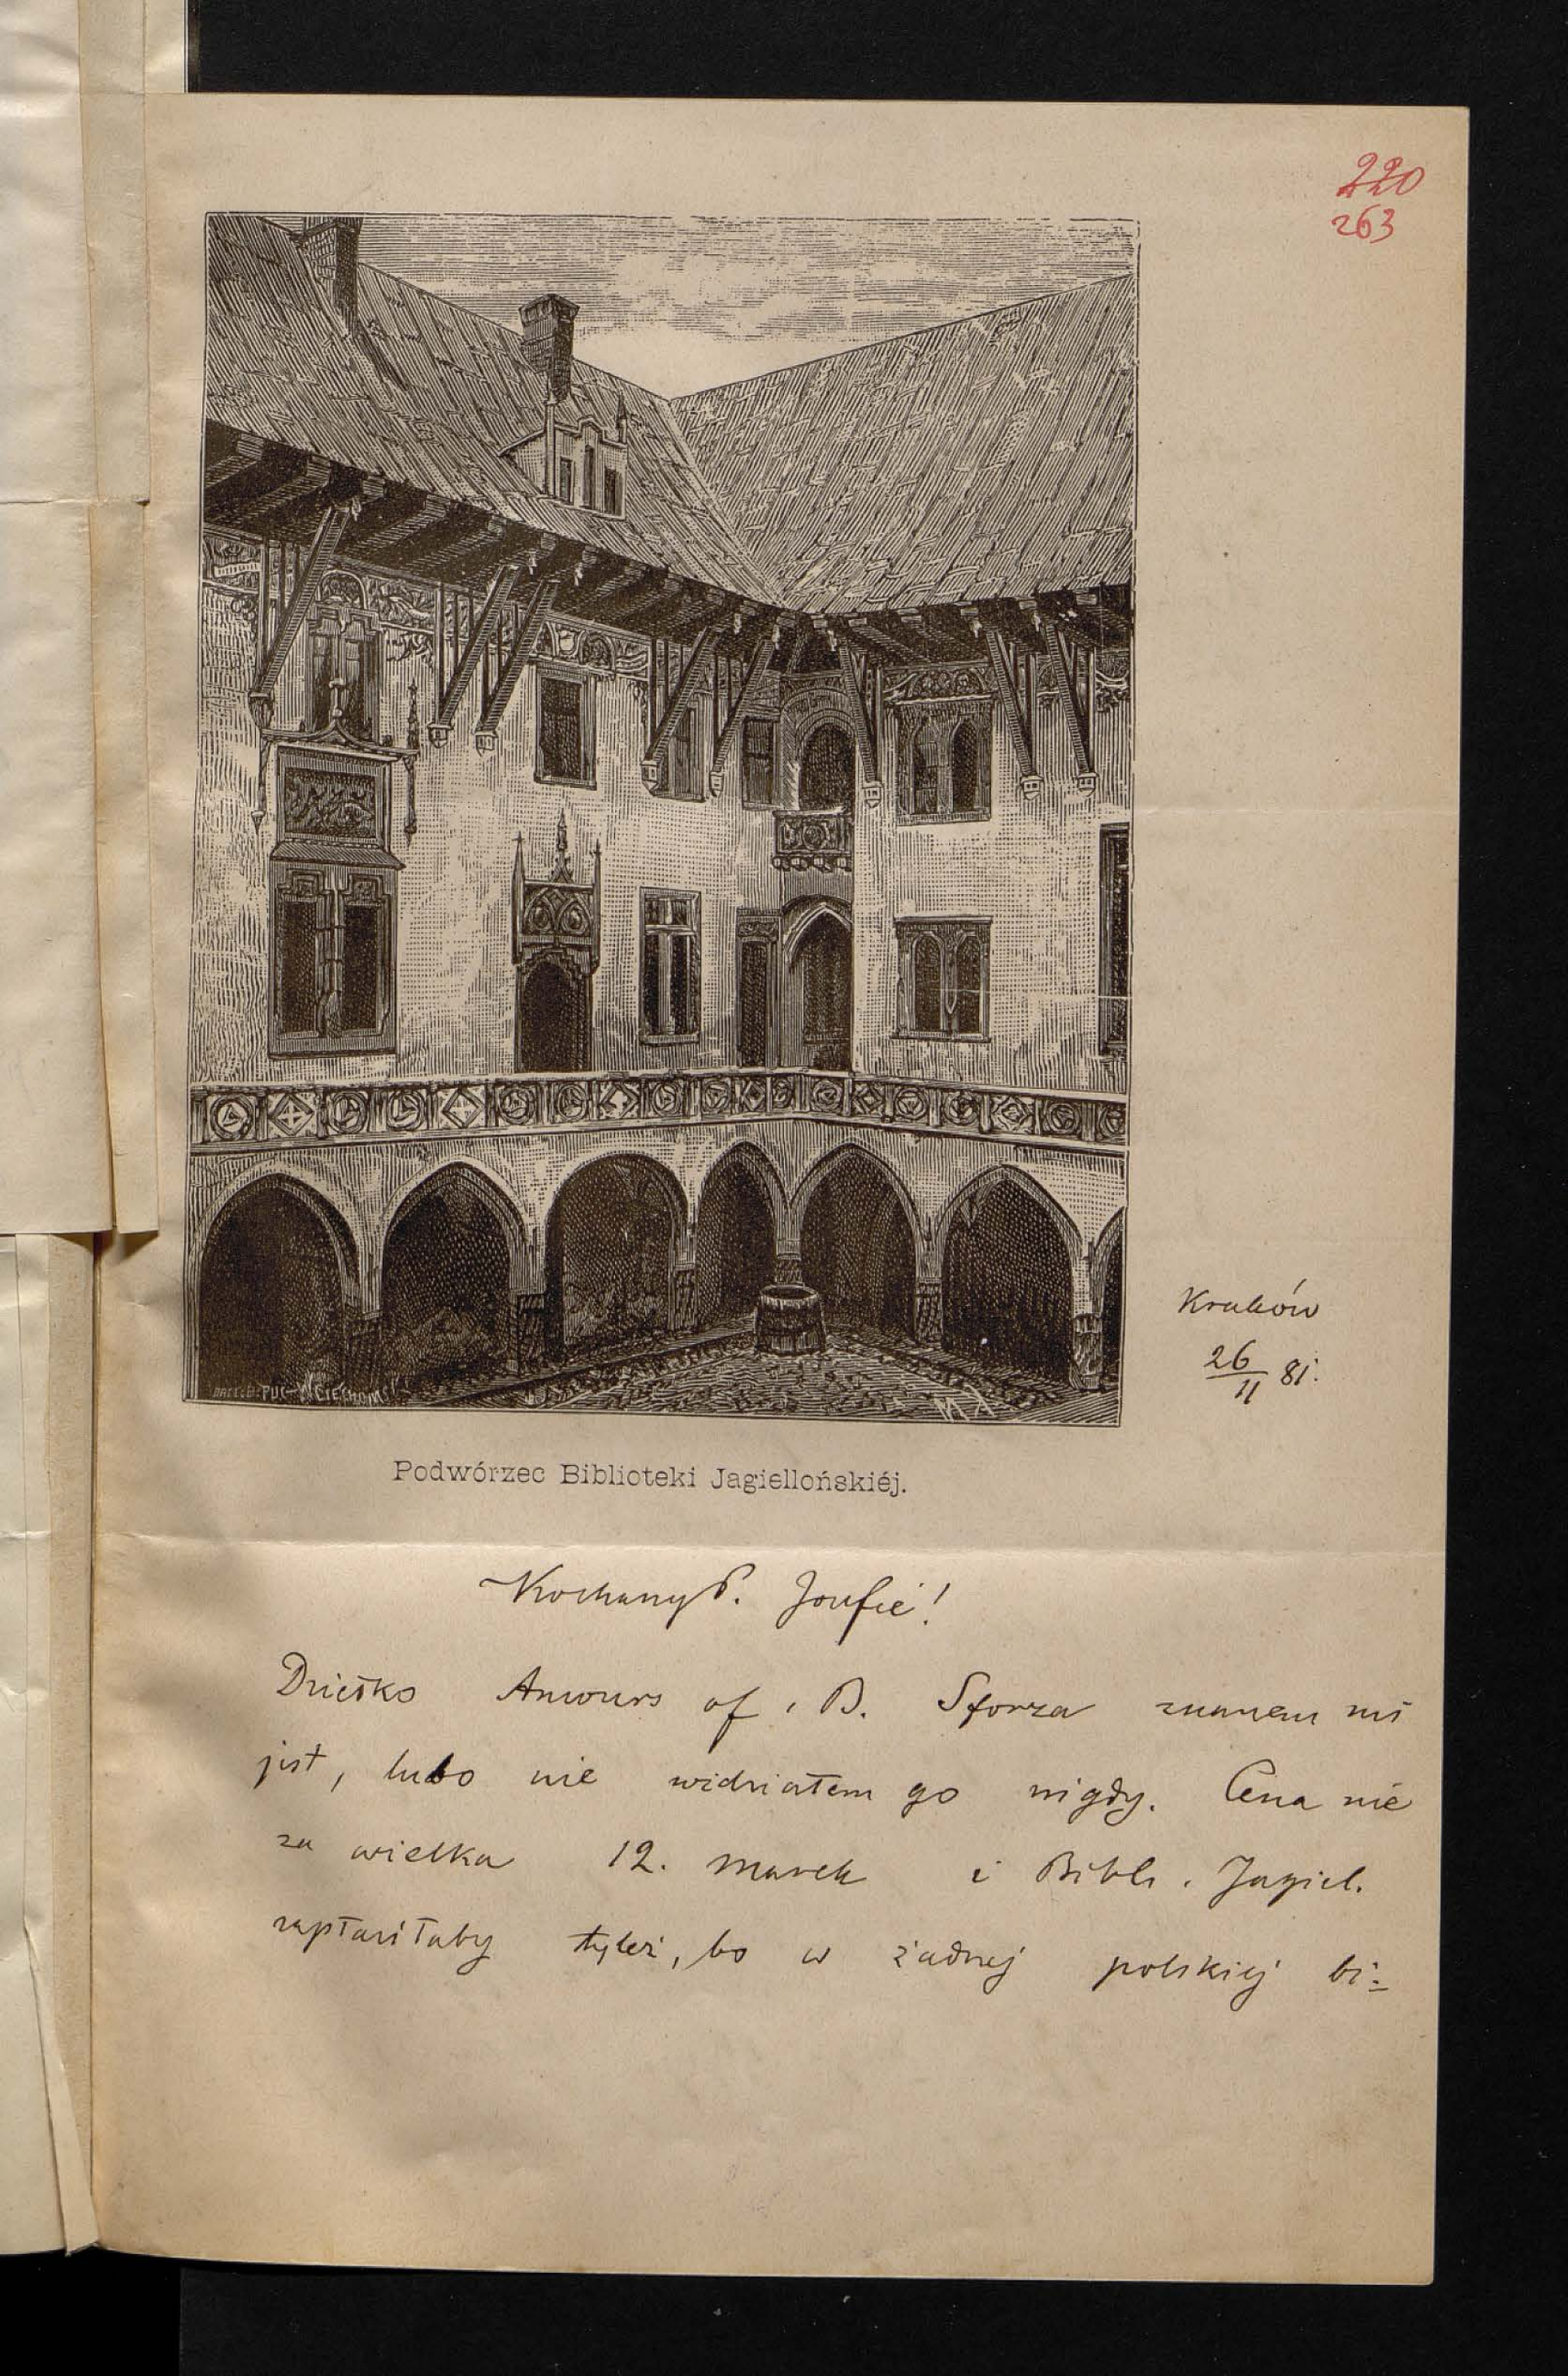 220
263
Kraków
26/11 81.
Podwórzec Biblioteki Jagiellońskiéj.
Kochany P. Józefie!
Dziełko Amours of, B. Sforza znanem mi
jest, lubo nie widziałem go nigdy. Cena nie
za wielka 12. marek i Bibl. Jagiel.
zapłaciłaby tyleż, bo w żadnej polskiej bi=